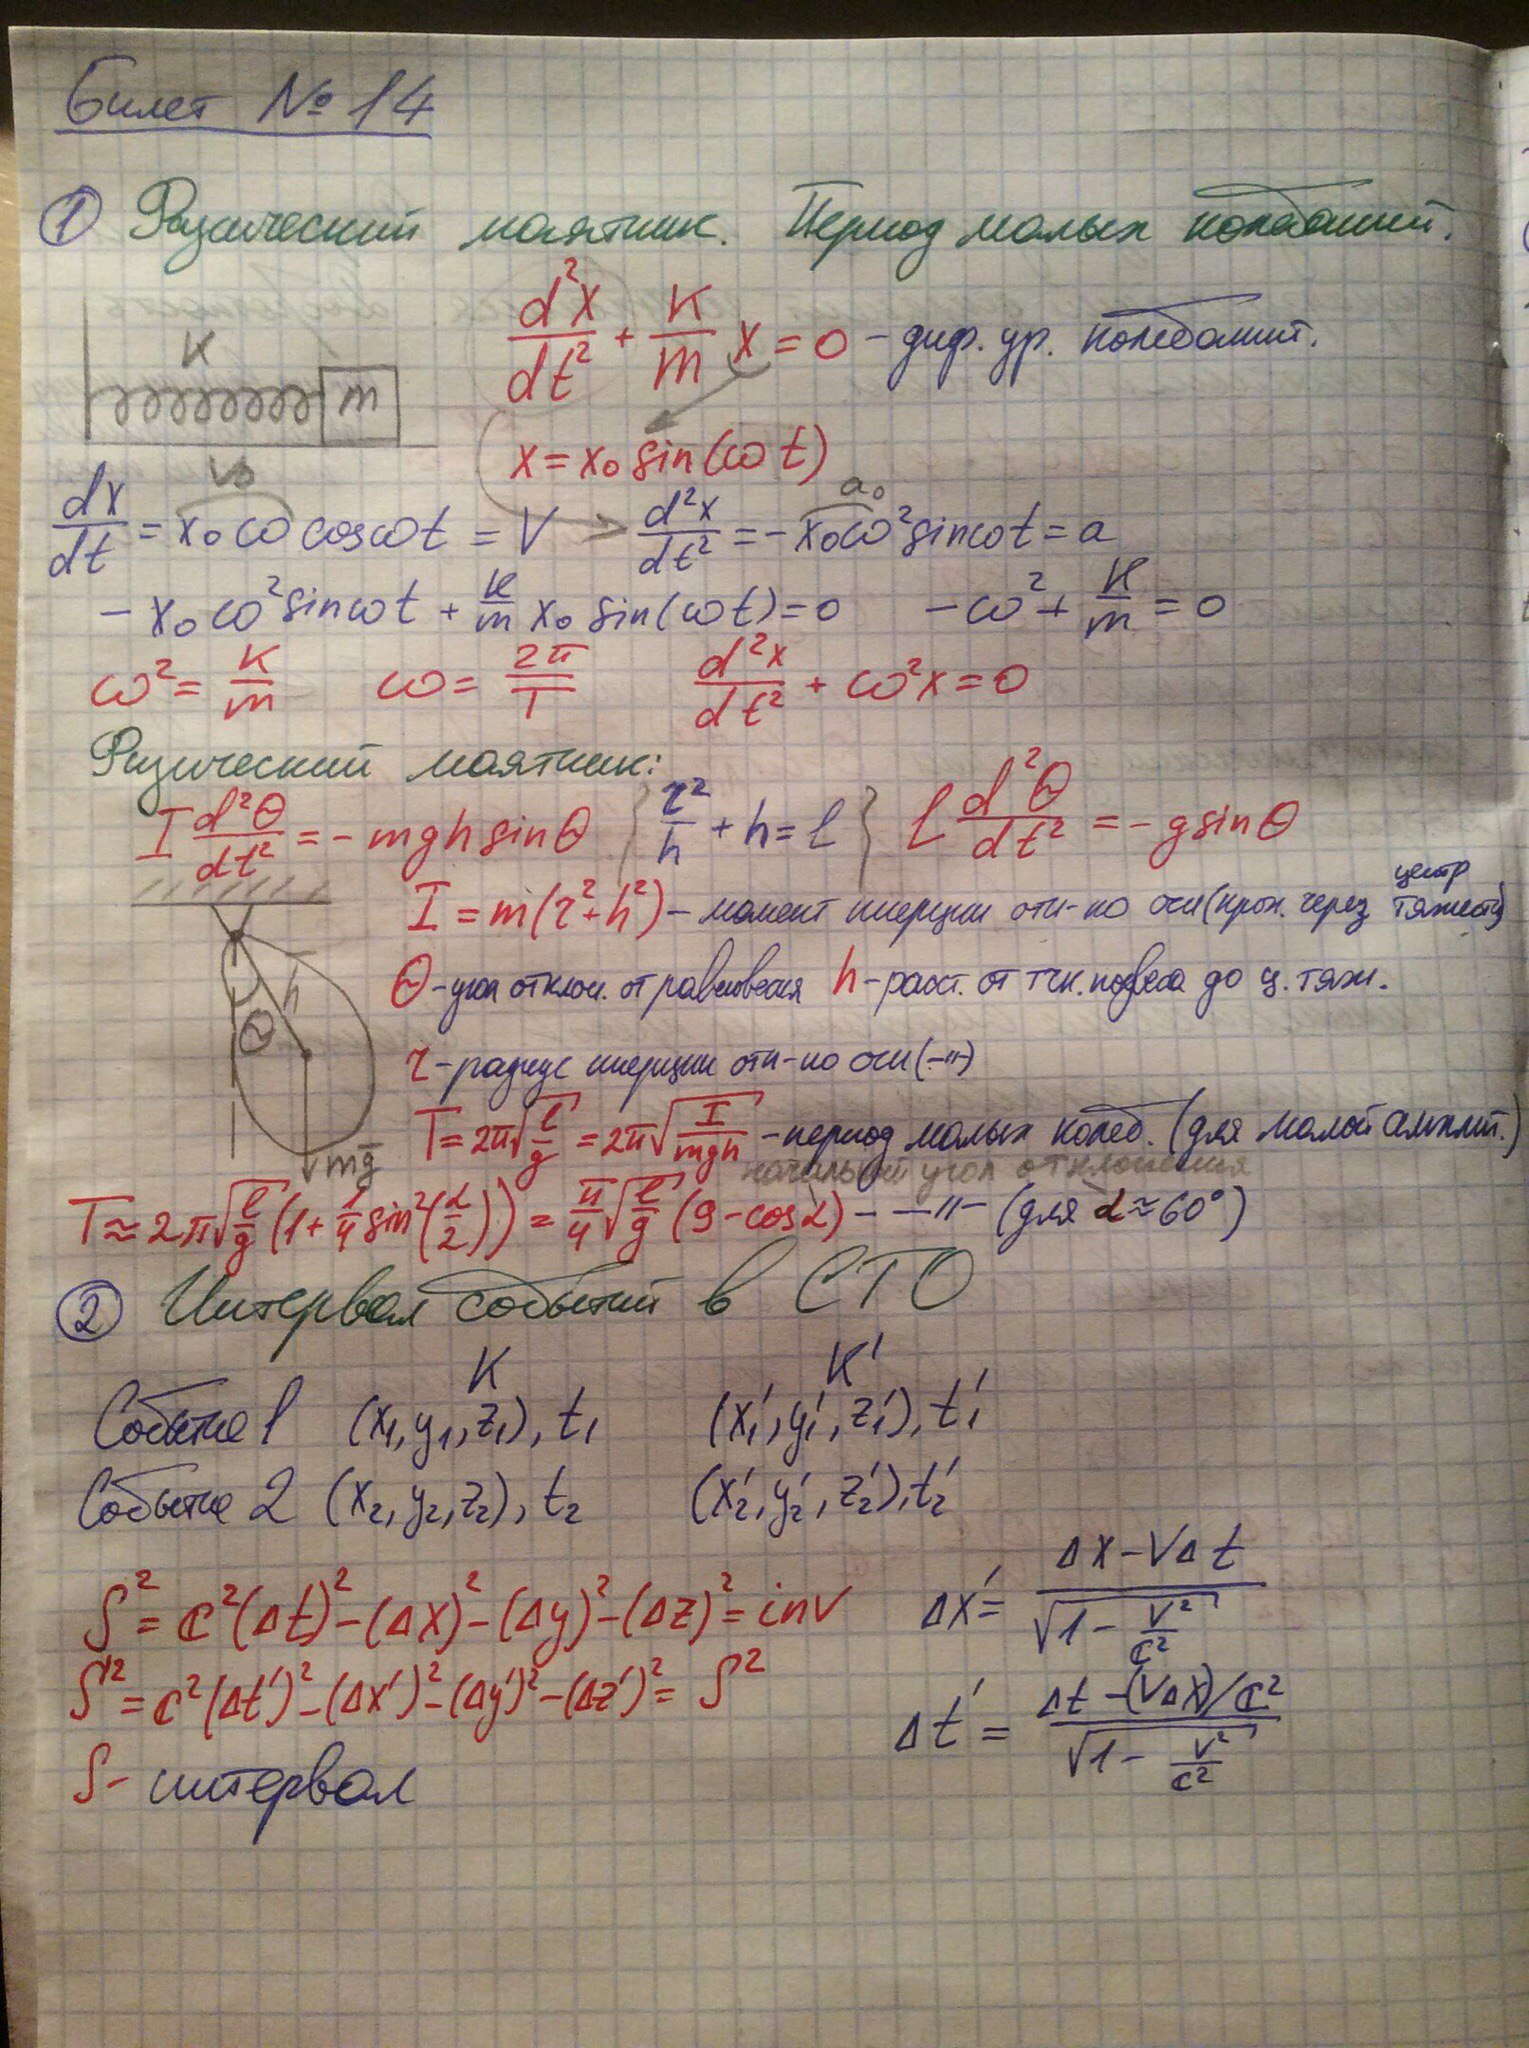 Билет № 14
① Физический маятник. Период малых колебаний.
d²x/dt² + K/m x = 0 – диф. ур. колебаний.
K m
x = x₀ sin(ωt)
V₀ a₀
dx/dt = x₀ω cosωt = V d²x/dt² = -x₀ω² sinωt = a
- x₀ω² sinωt + K/m x₀ sin(ωt) = 0 -ω² + K/m = 0
ω² = K/m ω = 2π/T d²x/dt² + ω²x = 0
Физический маятник:
I d²Θ/dt² = - mgh sinΘ { r²/h + h = l } l d²Θ/dt² = - g sinΘ
I = m(r² + h²) – момент инерции отн-но оси (прох. через центр тяжести)
Θ - угол отклон. от равновесия h - расст. от тчк. подвеса до ц. тяж.
h Θ
r - радиус инерции отн-но оси (–"–)
T = 2π√(l/g) = 2π√(I/mgh) – период малых колеб. (для малой амплит.)
mg̅
начальный угол отклонения
T ≈ 2π√(l/g) (1 + 1/4 sin²(α/2)) = π/4 √(l/g) (9 - cosα) – –"– (для α ≈ 60°)
② Интервал событий в СТО
K K'
Событие 1 (x₁, y₁, z₁), t₁ (x₁', y₁', z₁'), t₁'
Событие 2 (x₂, y₂, z₂), t₂ (x₂', y₂', z₂'), t₂'
S² = c²(Δt)² - (Δx)² - (Δy)² - (Δz)² = inv Δx' = (Δx - VΔt)/√(1 - V²/c²)
S'² = c²(Δt')² - (Δx')² - (Δy')² - (Δz')² = S²
Δt' = (Δt - (VΔx)/c²)/√(1 - V²/c²)
S - интервал